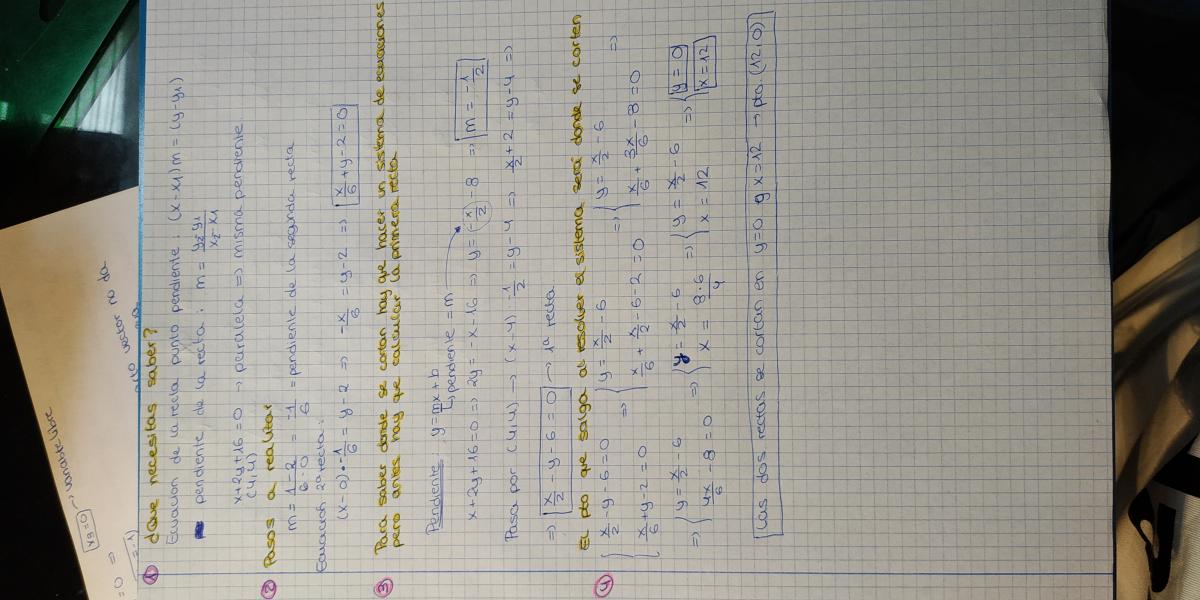 1 ¿Que necesitas saber?
Ecuación de la recta punto pendiente: (x-x1)m = (y-y1)
pendiente de la recta: m = (y2-y1)/(x2-x1)
x+2y+16=0 → paralela => misma pendiente
(4,4)
2 Pasos a realizar
m = (1-2)/(6-0) = -1/6 = pendiente de la segunda recta
Ecuación 2ª recta:
(x-0)·-1/6 = y-2 => -x/6 = y-2 => x/6 + y-2 = 0
3 Para saber donde se cortan hay que hacer un sistema de ecuaciones
pero antes hay que calcular la primera recta
Pendiente: y=mx+b
↳ pendiente = m
x+2y+16=0 => 2y = -x-16 => y = -x/2 - 8 => m = -1/2
Pasa por (4,4) → (x-4)·-1/2 = y-4 => x/2 + 2 = y-4 =>
=> x/2 - y - 6 = 0 → 1ª recta
4 El pto que salga al resolver el sistema será donde se corten
{ x/2 - y - 6 = 0 => { y = x/2 - 6 => { y = x/2 - 6 =>
{ x/6 + y - 2 = 0 { x/6 + x/2 - 6 - 2 = 0 { x/6 + 3x/6 - 8 = 0
=> { y = x/2 - 6 => { y = x/2 - 6 => { y = x/2 - 6 => { y = 0
{ 4x/6 - 8 = 0 { x = 8·6/4 { x = 12 { x = 12
Las dos rectas se cortan en y=0 y x=12 → pto (12,0)
x3=0 → variable libre
=0 =>
= -1
vector no da